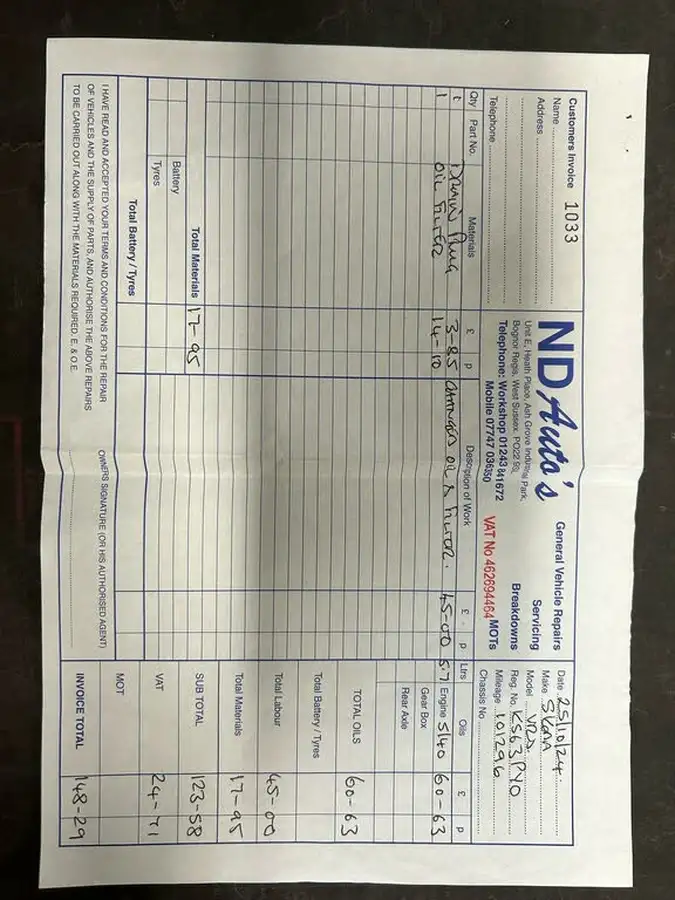 Customers Invoice 1033
Name
Address
Telephone
ND Auto's
Unit E, Heath Place, Ash Grove Industrial Park,
Bognor Regis, West Sussex. PO22 9SL
Telephone: Workshop 01243 841672
Mobile 07747 036350
General Vehicle Repairs
Servicing
Breakdowns
VAT No 462694464 MOTs
Date 25/10/24.
Make SKODA
Model VRS
Reg. No. KS63PYO
Mileage 101296
Chassis No
Qty Part No. Materials £ p Description of Work £ p Ltrs Oils £ p
1 DRAIN PLUG 3-85 CHANGED OIL & FILTER. 45-00 5.7 Engine 5/40 60-63
1 OIL FILTER 14-10 Gear Box
Rear Axle
TOTAL OILS 60-63
Total Battery / Tyres
Total Labour 45-00
Total Materials 17-95
Total Materials 17-95 SUB TOTAL 123-58
Battery
Tyres VAT 24-71
Total Battery / Tyres MOT
I HAVE READ AND ACCEPTED YOUR TERMS AND CONDITIONS FOR THE REPAIR
OF VEHICLES AND THE SUPPLY OF PARTS, AND AUTHORISE THE ABOVE REPAIRS
TO BE CARRIED OUT ALONG WITH THE MATERIALS REQUIRED. E. & O.E.
OWNERS SIGNATURE (OR HIS AUTHORISED AGENT)
INVOICE TOTAL 148-29